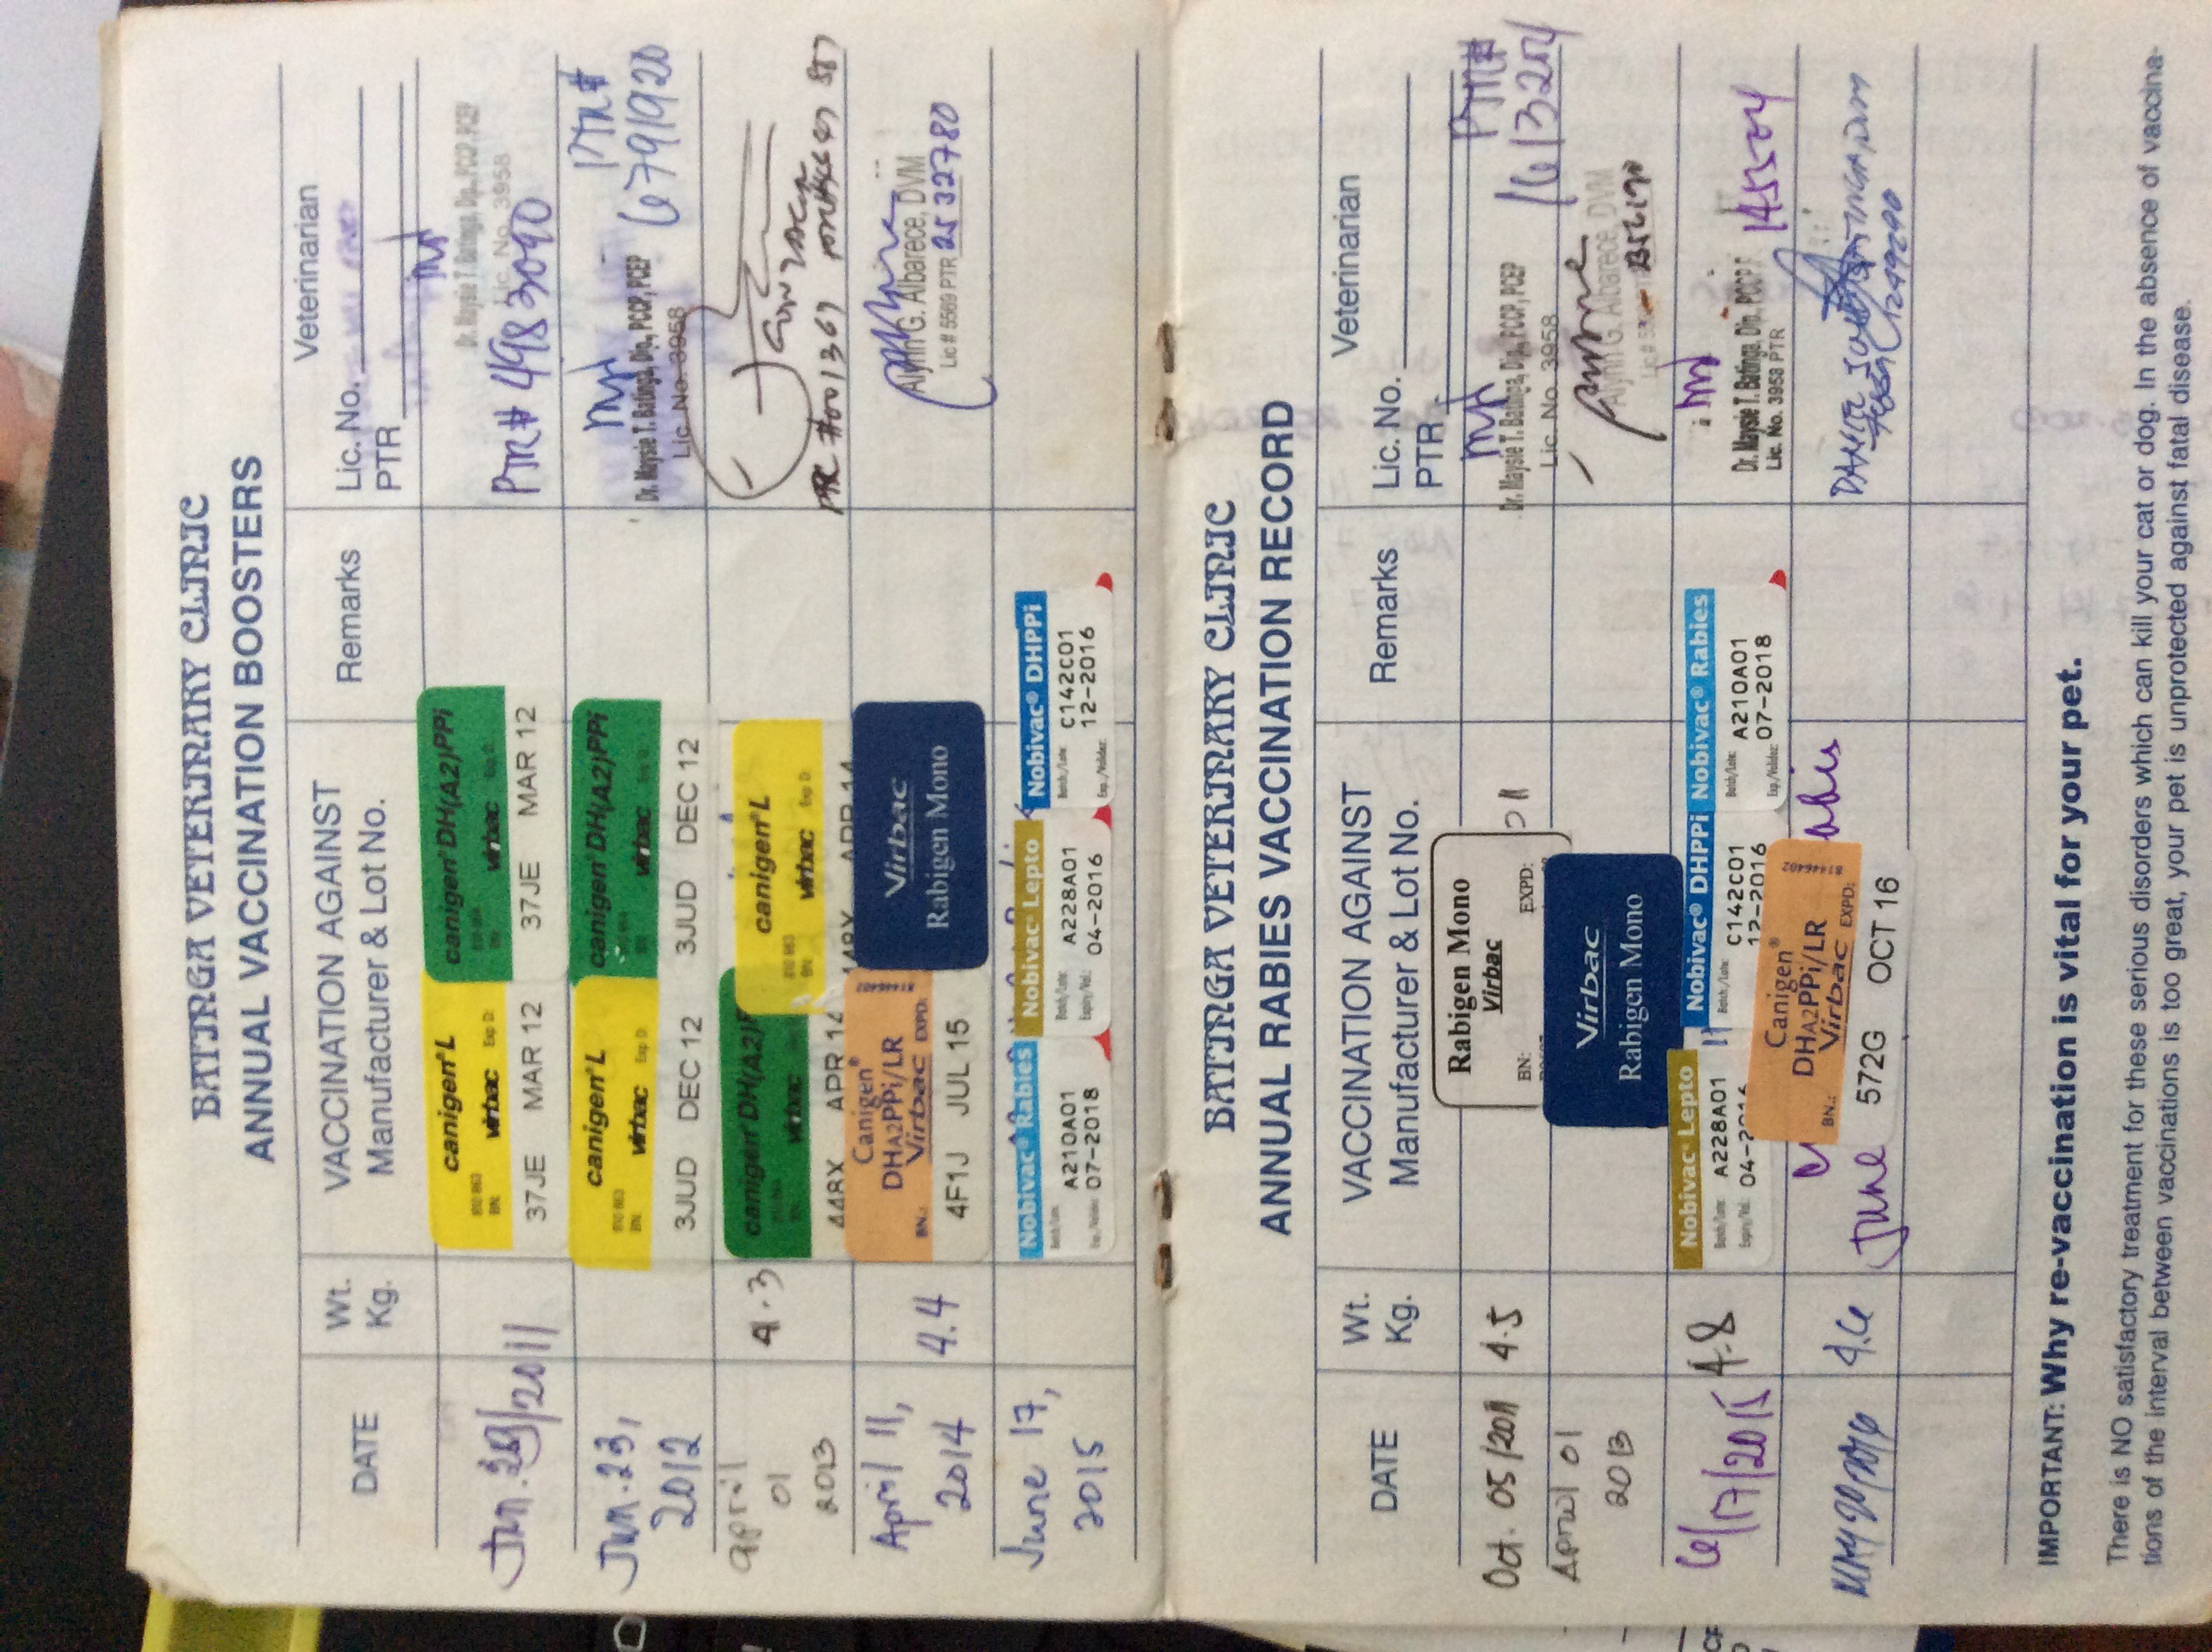 BATINGA VETERINARY CLINIC
ANNUAL VACCINATION BOOSTERS
DATE
Wt.
Kg.
VACCINATION AGAINST
Manufacturer & Lot No.
Remarks
Veterinarian
Lic. No.
PTR
2011
canigen® L
virbac Exp D:
37JE MAR 12
canigen® DH(A2)PPi
virbac
37JE MAR 12
Dr. Maysie T. Batinga, Dip., PCCP, PCEP
Lic. No. 3958
4983090
Jun. 23,
2012
canigen® L
virbac Exp D:
3JUD DEC 12
canigen® DH(A2)PPi
virbac
3JUD DEC 12
Dr. Maysie T. Batinga, Dip., PCCP, PCEP
Lic. No. 3958
6791920
april
01
2013
4.3
canigen® DH(A2)
virbac
448X APR 14
canigen® L
virbac Exp D:
448X APR 14
April 11,
2014
4.4
Canigen®
DHA2PPi/LR
BN.: Virbac EXPD:
4F1J JUL 15
Virbac
Rabigen Mono
Alynn G. Albarece, DVM
Lic # 5569 PTR 2532780
June 17,
2015
Nobivac® Rabies
A210A01
07-2018
Nobivac® Lepto
A228A01
04-2016
Nobivac® DHPPi
C142C01
12-2016
BATINGA VETERINARY CLINIC
ANNUAL RABIES VACCINATION RECORD
DATE
Wt.
Kg.
VACCINATION AGAINST
Manufacturer & Lot No.
Remarks
Veterinarian
Lic. No.
PTR
Oct. 05/2011
4.5
Rabigen Mono
Virbac
BN: EXPD:
Dr. Maysie T. Batinga, Dip., PCCP, PCEP
Lic. No. 3958
1613204
April 01
2013
Virbac
Rabigen Mono
Alynn G. Albarece, DVM
6/17/2015
4.8
Nobivac® Lepto
A228A01
Nobivac® DHPPi
C142C01
12-2016
Nobivac® Rabies
A210A01
07-2018
Dr. Maysie T. Batinga, Dip. PCCP
Lic. No. 3958 PTR
May 20/2016
4.6
June
Canigen®
DHA2PPi/LR
BN.: Virbac EXPD:
572G OCT 16
IMPORTANT: Why re-vaccination is vital for your pet.
There is NO satisfactory treatment for these serious disorders which can kill your cat or dog. In the absence of vaccina-
tions of the interval between vaccinations is too great, your pet is unprotected against fatal disease.